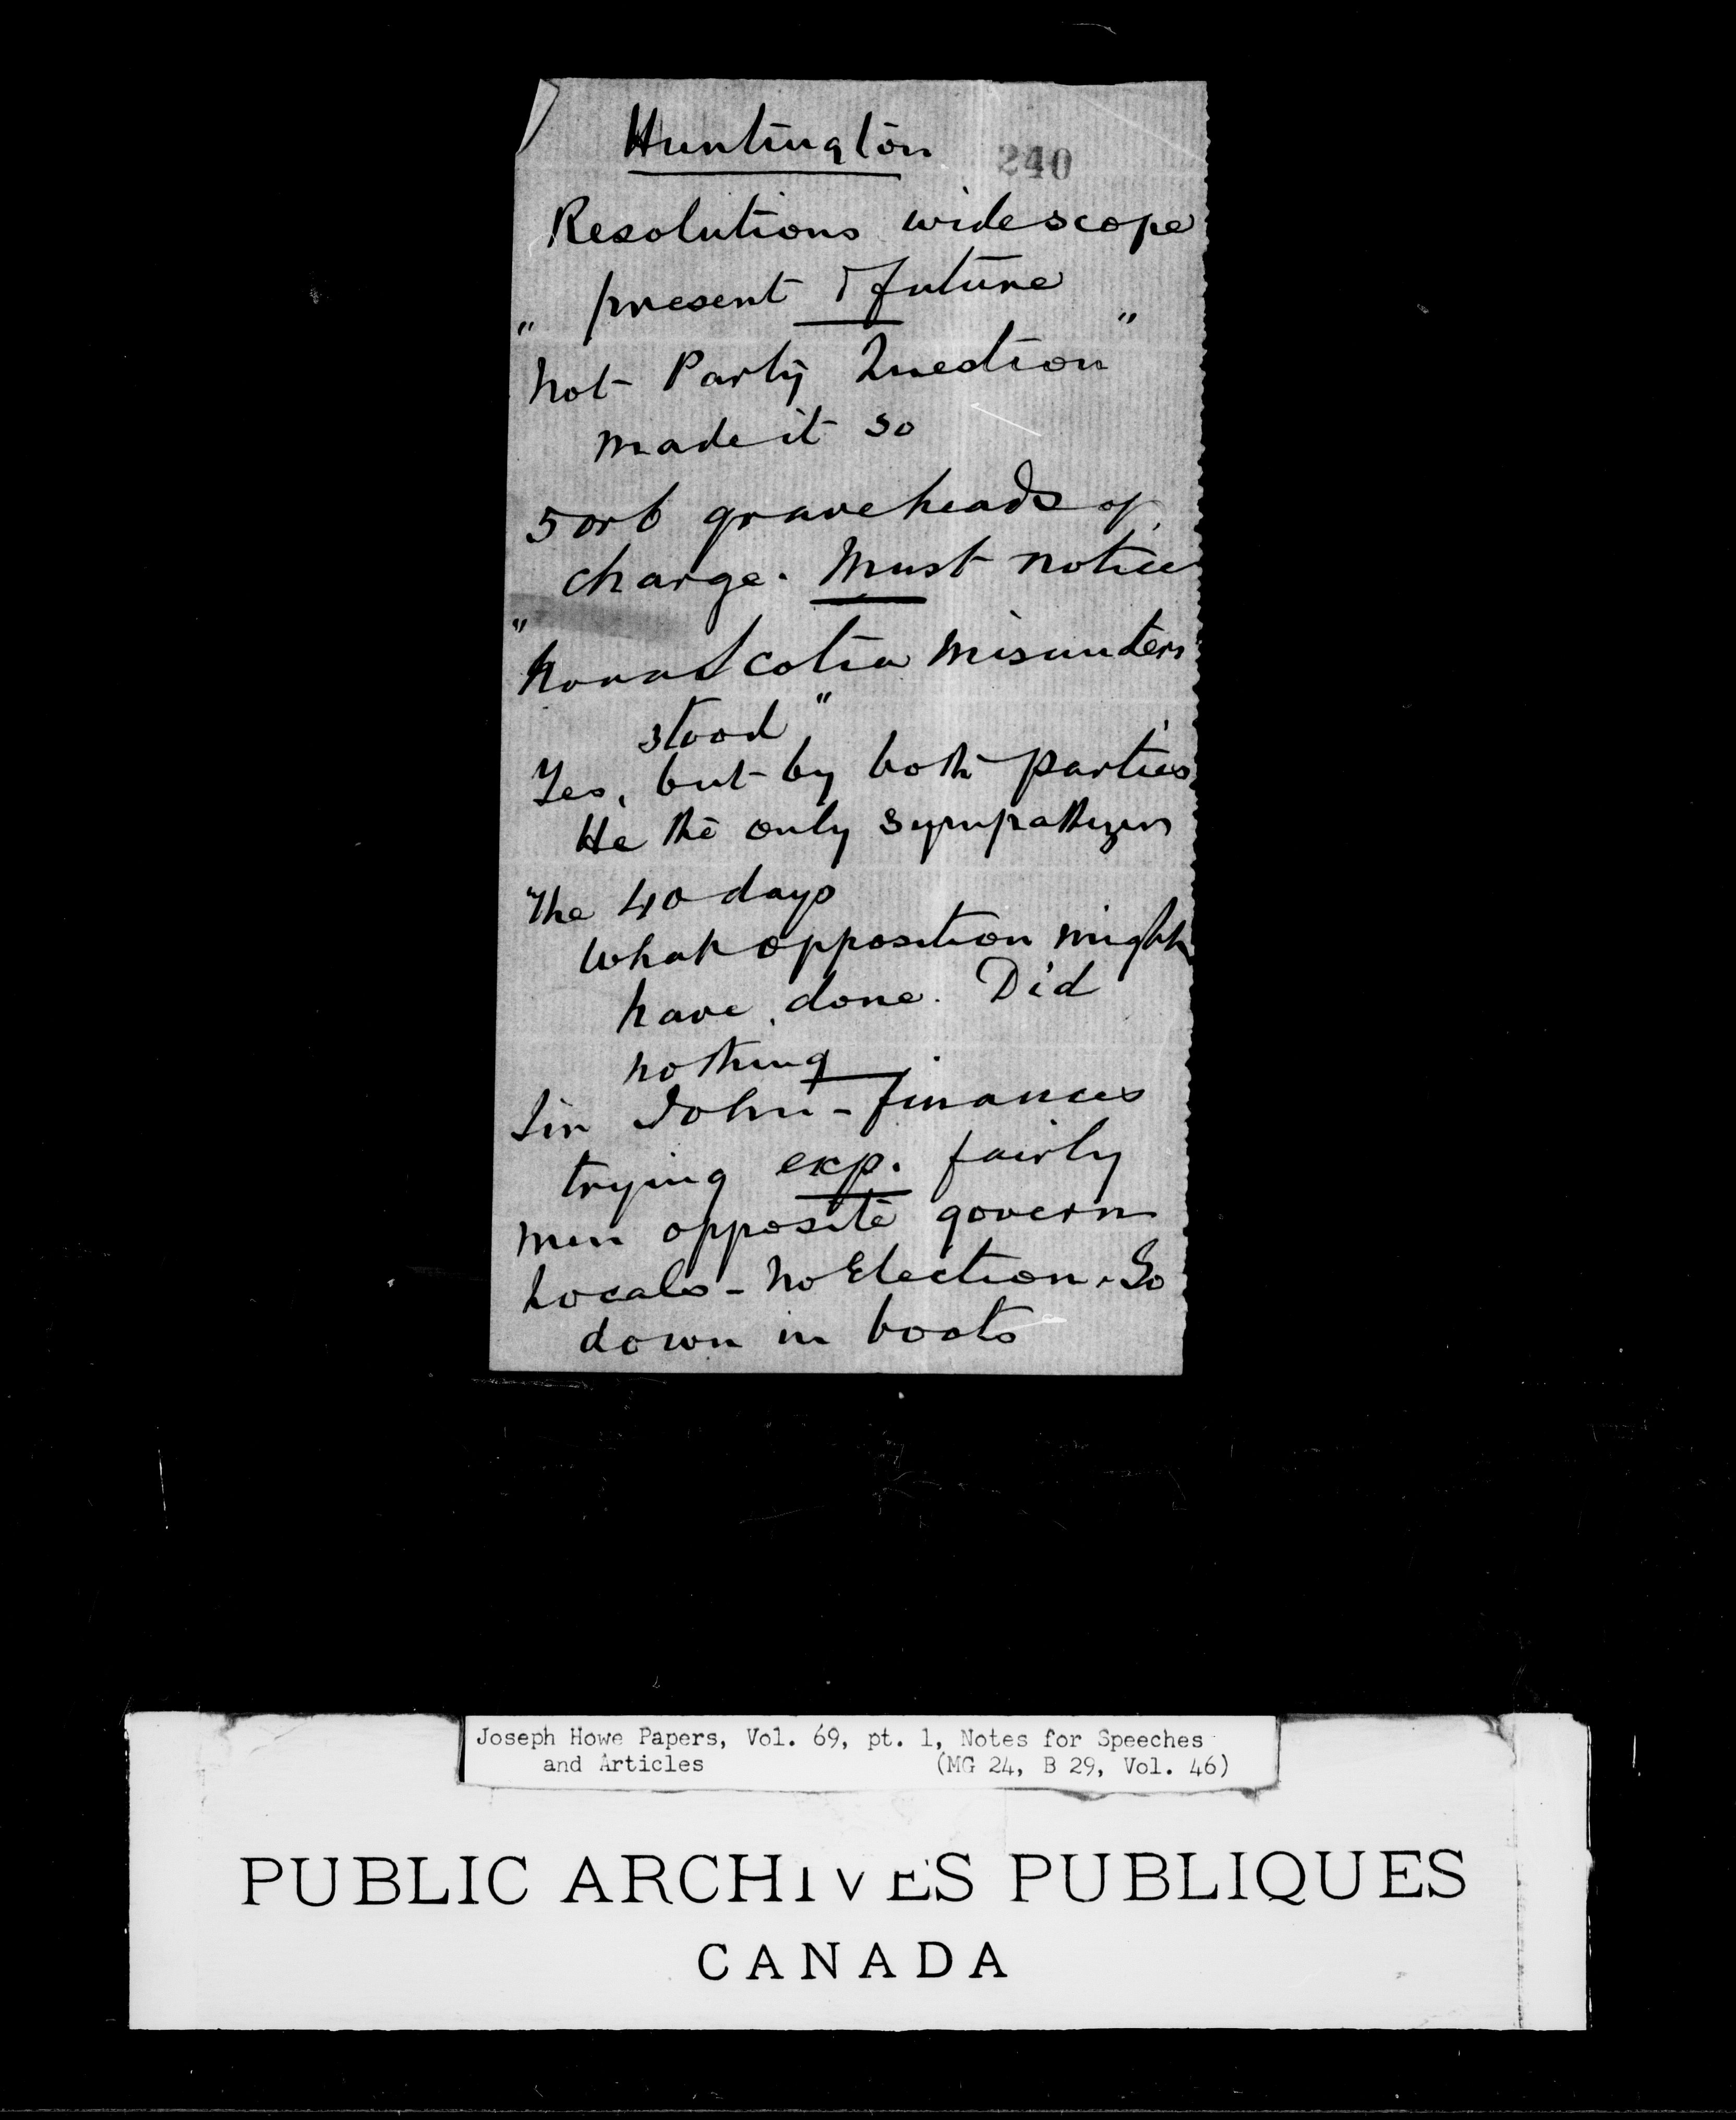 Huntington
240
Resolutions wide scope
present & future
"Not Party Question"
made it so
5 or 6 grave heads of
charge. Must notice
"Nova Scotia misunder
stood"
Yes, but by both parties
He the only sympathizer
The 40 days
What opposition might
have done. Did
nothing
Sir John - finances
trying exp. fairly
Men opposite govern
Locals - No Election. Go
down in boots
Joseph Howe Papers, Vol. 69, pt. 1, Notes for Speeches
and Articles (MG 24, B 29, Vol. 46)
PUBLIC ARCHIVES PUBLIQUES
CANADA